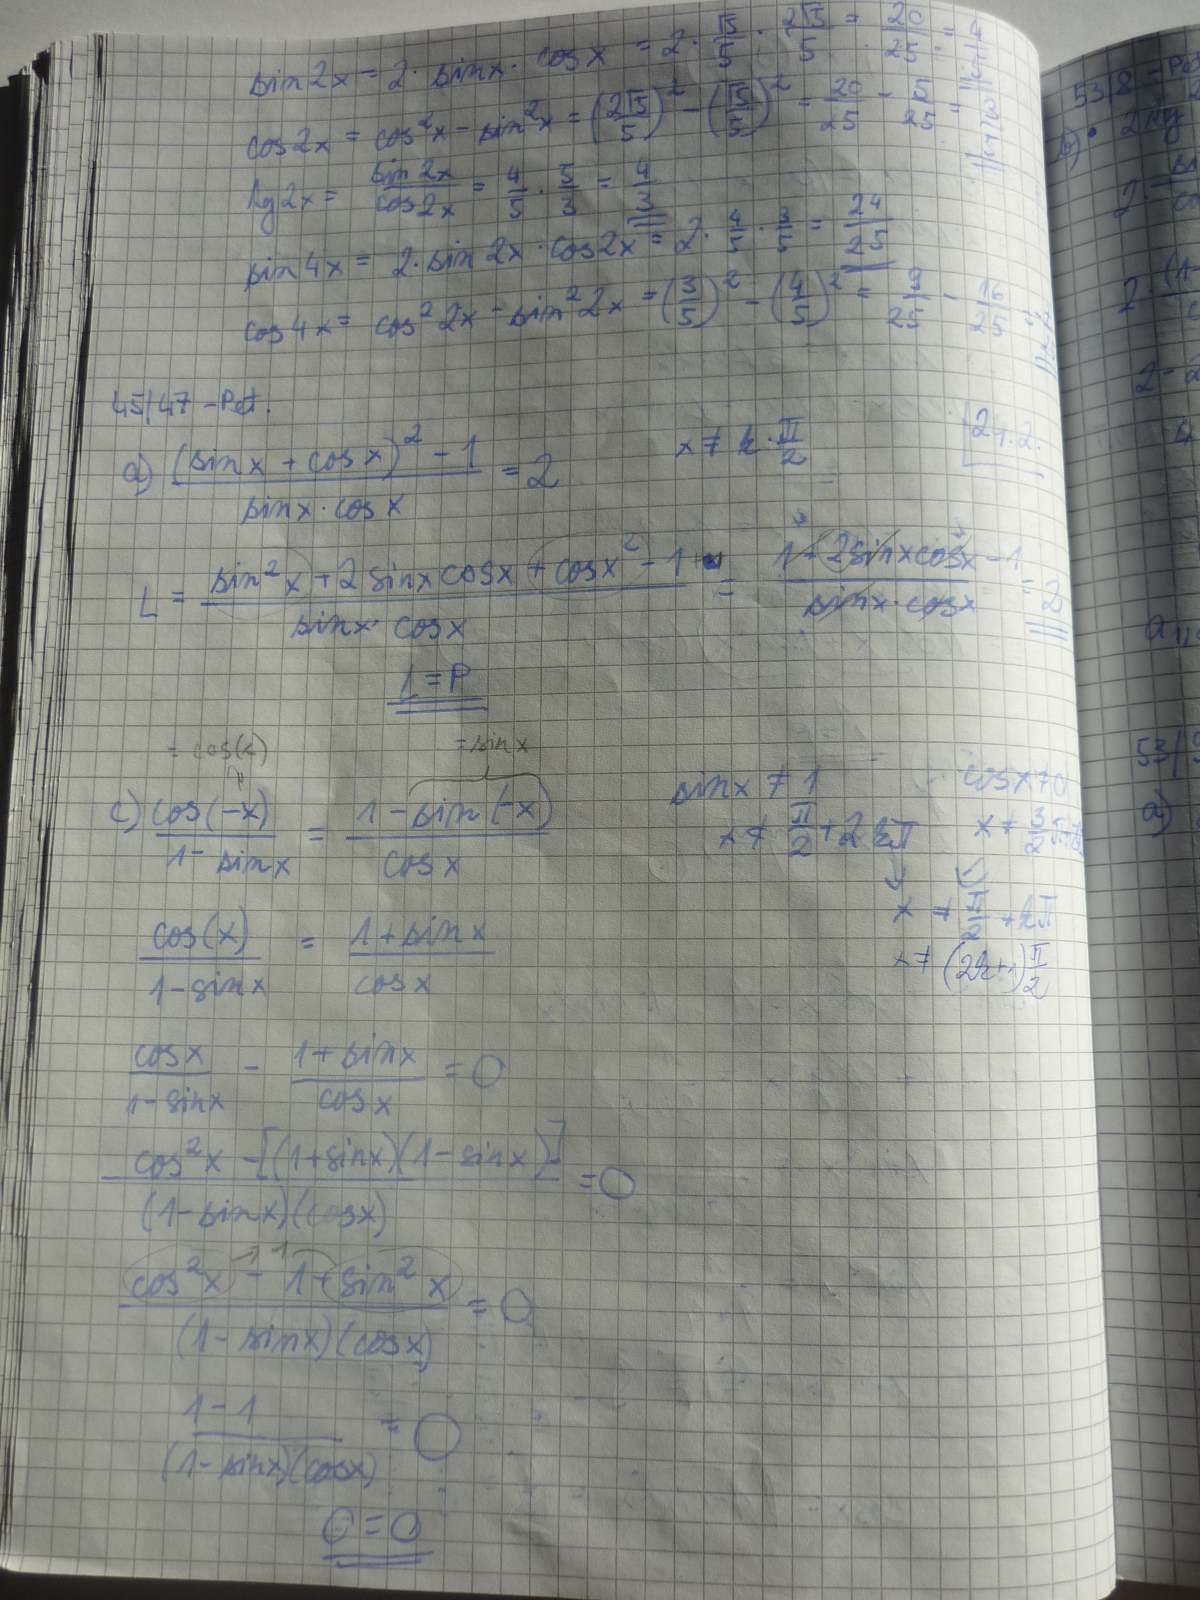 sin2x = 2 · sinx · cosx = 2 · √5/5 · 2√5/5 = 20/25 = 4/5
cos2x = cos²x - sin²x = (2√5/5)² - (√5/5)² = 20/25 - 5/25 = 3/5
tg2x = sin2x/cos2x = 4/5 · 5/3 = 4/3
sin4x = 2 · sin2x · cos2x = 2 · 4/5 · 3/5 = 24/25
cos4x = cos²2x - sin²2x = (3/5)² - (4/5)² = 9/25 - 16/25 =
45/47 - Pet.
a) ((sinx + cosx)² - 1)/(sinx · cosx) = 2 x ≠ k · π/2
L = (sin²x + 2sinxcosx + cosx² - 1)/(sinx · cosx) = (1 + 2sinxcosx - 1)/(sinx · cosx) = 2
L = P
= cos(x) = sinx
c) cos(-x)/(1 - sinx) = (1 - sin(-x))/cosx sinx ≠ 1 cosx ≠ 0
x ≠ π/2 + 2kπ
cos(x)/(1 - sinx) = (1 + sinx)/cosx x ≠ π/2 + kπ
x ≠ (2k+1)π/2
cosx/(1 - sinx) - (1 + sinx)/cosx = 0
(cos²x - [(1 + sinx)(1 - sinx)])/((1 - sinx)(cosx)) = 0
→ 1
(cos²x - 1 + sin²x)/((1 - sinx)(cosx)) = 0
(1 - 1)/((1 - sinx)(cosx)) = 0
0 = 0